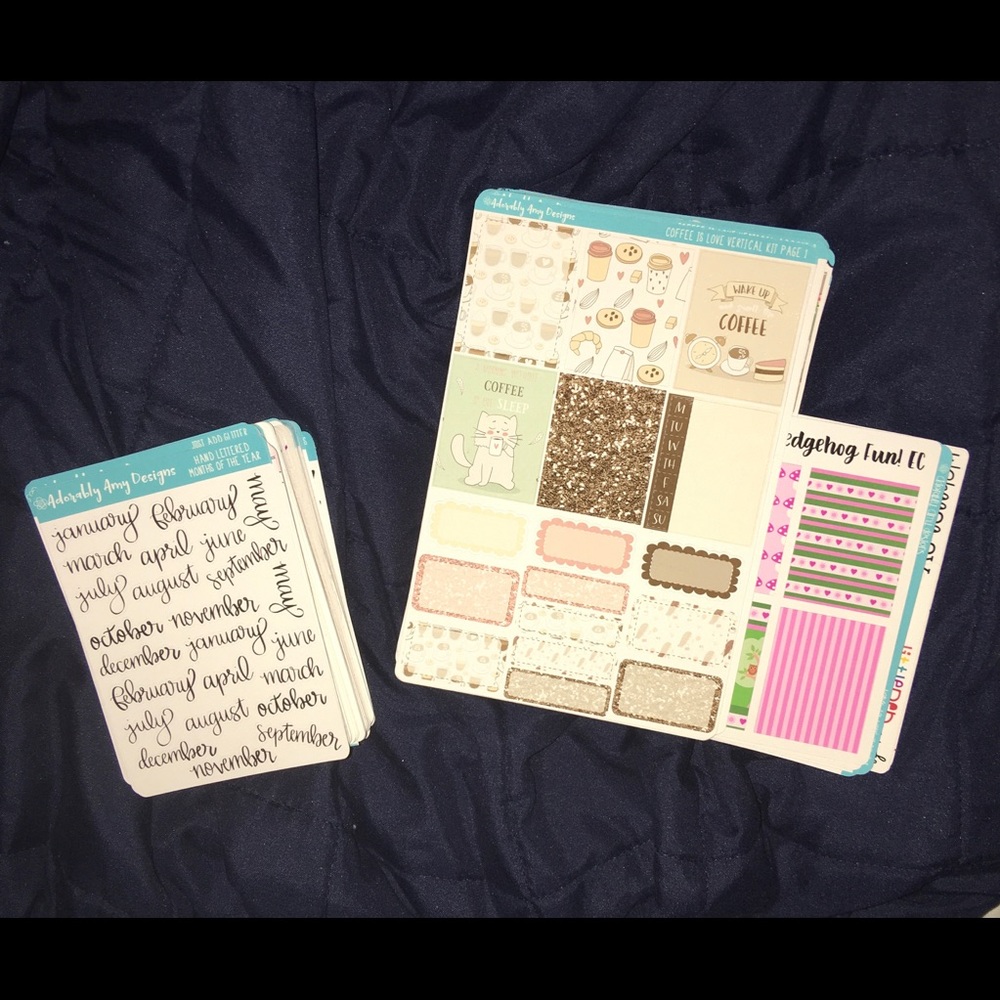 Adorably Amy Designs
JUST ADD GLITTER
HAND LETTERED
MONTHS OF THE YEAR
january february may
march april june
july august september may
october november
december january june
february april march
july august october
december september
november
Adorably Amy Designs
COFFEE IS LOVE VERTICAL KIT PAGE 1
WAKE UP
COFFEE
COFFEE
SLEEP
M
TU
W
TH
F
SA
SU
edgehog Fun! EC